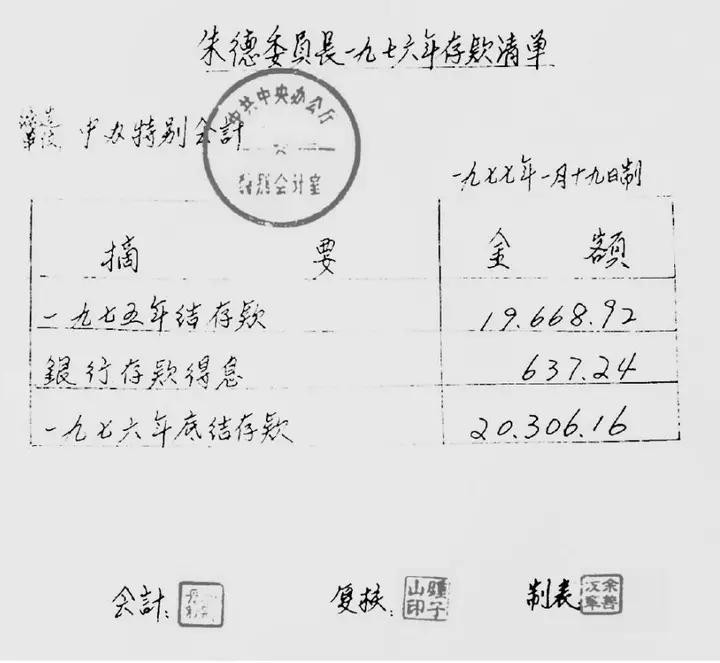 朱德委員長一九七六年存款清单
中共中央办公厅
特别会计室
中办特别会計
一九七七年一月十九日制
摘要 金額
一九七五年结存款 19.668.92
銀行存款得息 637.24
一九七六年底结存款 20.306.16
会計: 复核: 制表:
山印